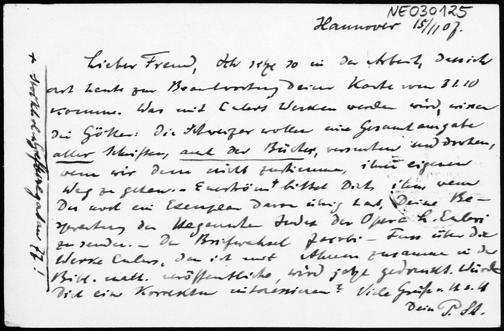 NE030125
Hannover 15/11 07.
Lieber Freund, Ich sitze so in der Arbeit, dass ich
erst heute zur Beantwortung Deiner Karte vom 31.10
komme. Was mit Eulers Werken werden wird, wissen
die Götter. Die Schweizer wollen eine Gesamtausgabe
aller Schriften, auch der Bücher, versuchen und drohen,
wenn wir dem nicht zustimmen, ihre eigenen
Weg zu gehen. – Eneström bittet Dich, ihm wenn
Du noch ein Exemplar davon übrig hast, Deine Be-
sprechung des Hagenschen Index der Opera L. Euleri
zu senden. – Der Briefwechsel Jacobi – Fuss über die
Werke Eulers, den ich mit Ahrens zusammen in der
Bibl. math. veröffentliche, wird jetzt gedruckt. Würde
Dich eine Korrektur interessieren? Viele Grüße
Dein P. St.